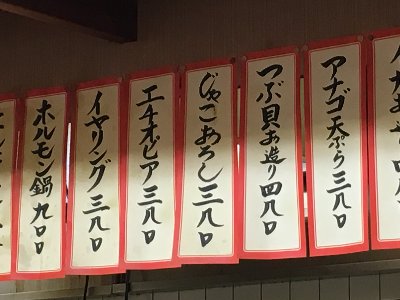 アナゴ天ぷら三八〇
つぶ貝お造り四八〇
じゃこおろし三八〇
エチオピア三八〇
イヤリング三八〇
ホルモン鍋九〇〇